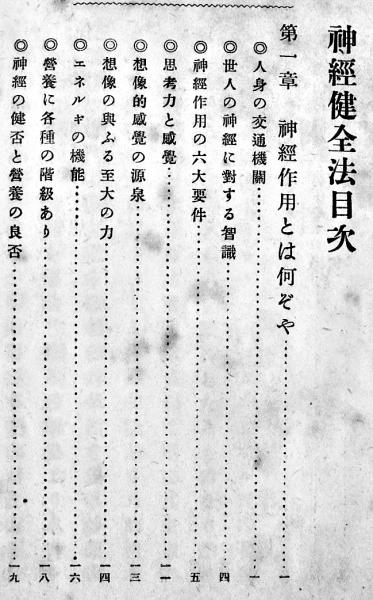 神經健全法目次
第一章 神經作用とは何ぞや……一
◎人身の交通機關……一
◎世人の神經に對する智識……四
◎神經作用の六大要件……五
◎思考力と感覺……一一
◎想像的感覺の源泉……一三
◎想像の與ふる至大の力……一四
◎エネルギの機能……一六
◎營養に各種の階級あり……一八
◎神經の健否と營養の良否……一九